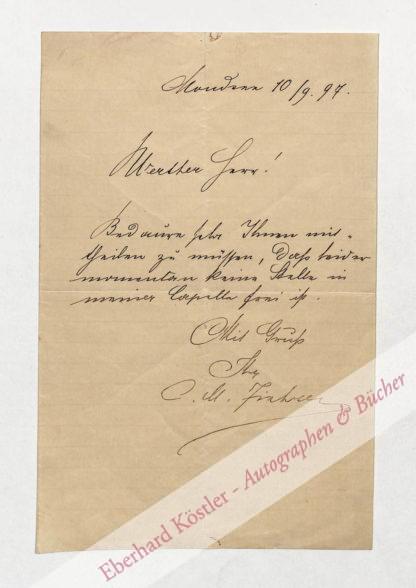 10/9. 97.
Werther Herr!
Bedaure sehr Ihnen mit-
theilen zu müssen, daß leider
momentan keine Stelle in
meiner Capelle frei ist.
Mit Gruß
Ihr
C. M. Ziehrer
Eberhard Köstler - Autographen & Bücher